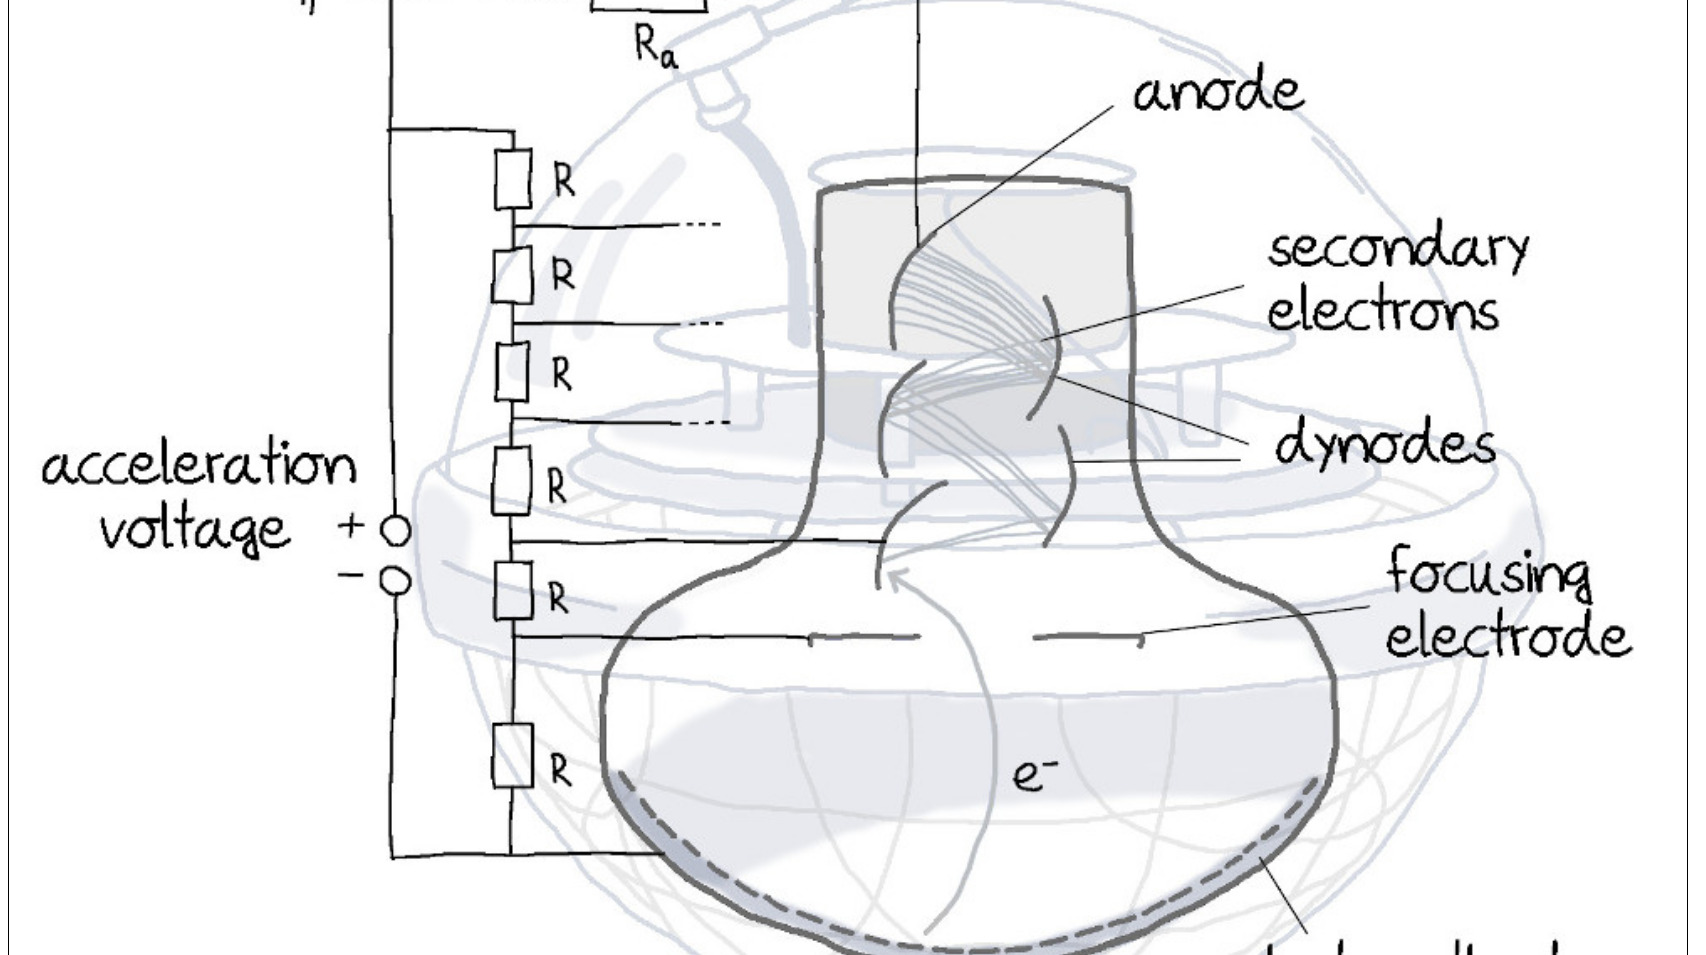 Ra
anode
R
secondary
electrons
R
R
dynodes
acceleration
voltage
R
+
-
focusing
electrode
R
e-
R